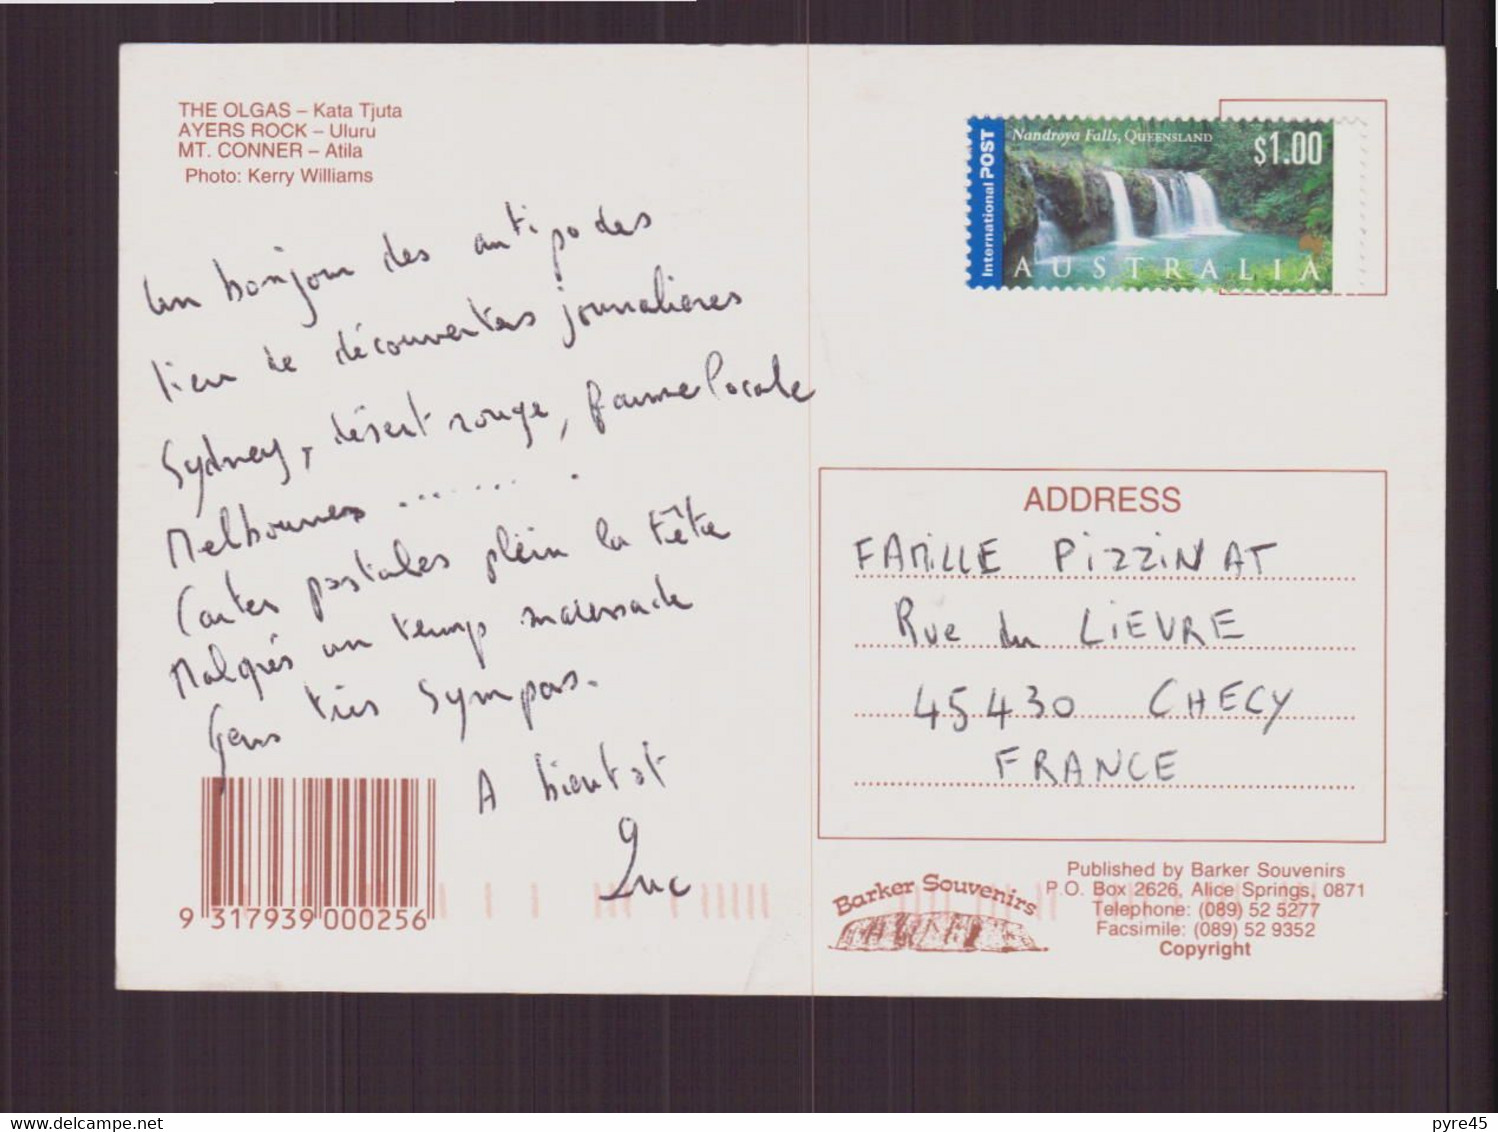 THE OLGAS – Kata Tjuta
AYERS ROCK – Uluru
MT. CONNER – Atila
Photo: Kerry Williams
Un bonjour des antipodes
lieu de découvertes journalières
Sydney, désert rouge, faune locale
Melbourne ..........
Cartes postales plein la tête
Malgrés un temps maussade
Gens très sympas.
A bientot
Luc
9 317939 000256
International POST
Nandroya Falls, QUEENSLAND
$1.00
AUSTRALIA
ADDRESS
FAMILLE PIZZINAT
Rue du LIEVRE
45430 CHECY
FRANCE
Barker Souvenirs
Published by Barker Souvenirs
P.O. Box 2626, Alice Springs, 0871
Telephone: (089) 52 5277
Facsimile: (089) 52 9352
Copyright
Delcampe.net
pyre45